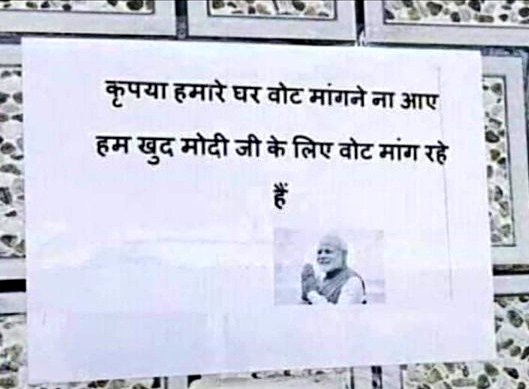 कृपया हमारे घर वोट मांगने ना आए
हम खुद मोदी जी के लिए वोट मांग रहे
हैं